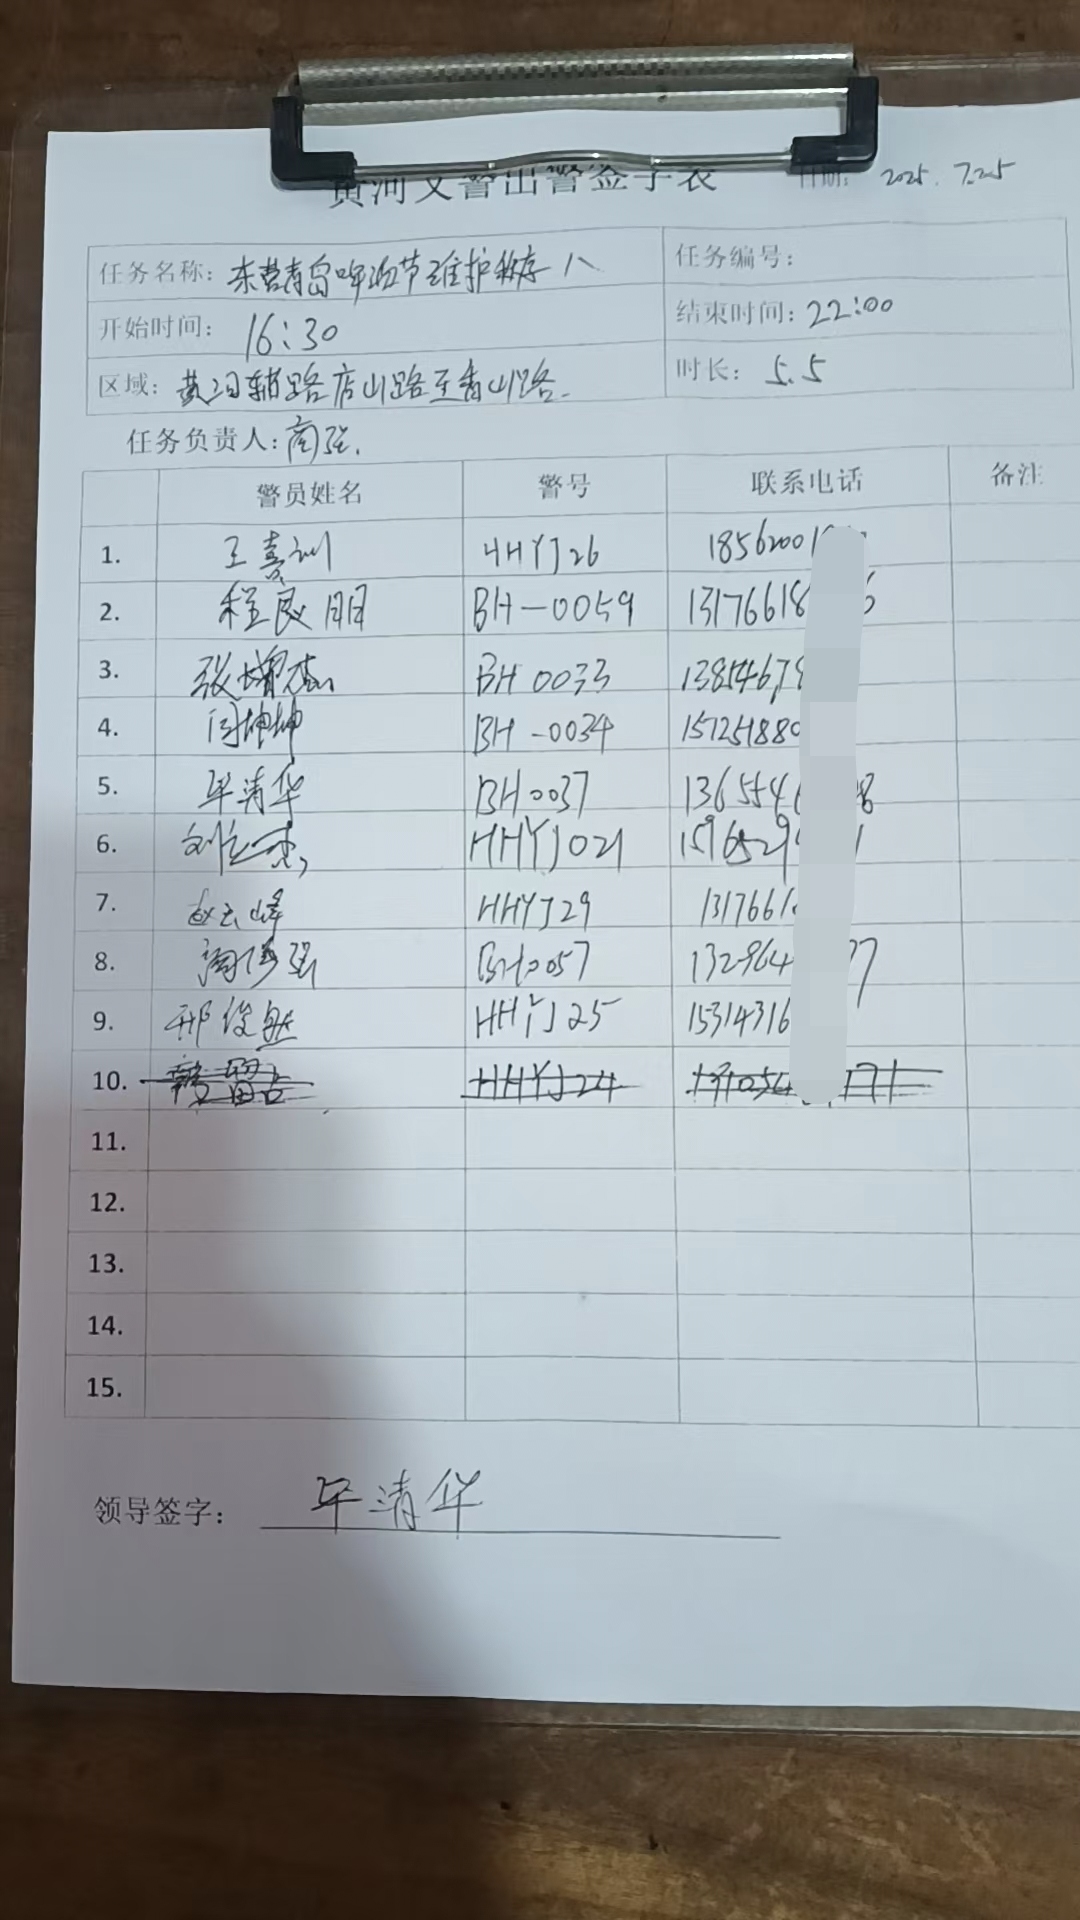 黄河义警出警签字表 日期: 2025.7.25
任务名称: 东营青岛啤酒节维护秩序 八 任务编号:
开始时间: 16:30 结束时间: 22:00
区域: 黄河辅路庐山路至青山路. 时长: 5.5
任务负责人: 商强.
警员姓名 警号 联系电话 备注
1. 王喜训 HHYJ26 18562001
2. 程良朋 BH-0059 13176618 6
3. 张增杰 BH 0033 13854678
4. 闫坤坤 BH-0034 157251880
5. 毕清华 BH0037 1365546 8
6. 刘立杰 HHYJ021 1596529 1
7. 赵云峰 HHYJ29 1317661
8. 商传强 BH0057 132964 77
9. 邢俊然 HHYJ25 15314316
10. HHYJ24
11.
12.
13.
14.
15.
领导签字: 毕清华